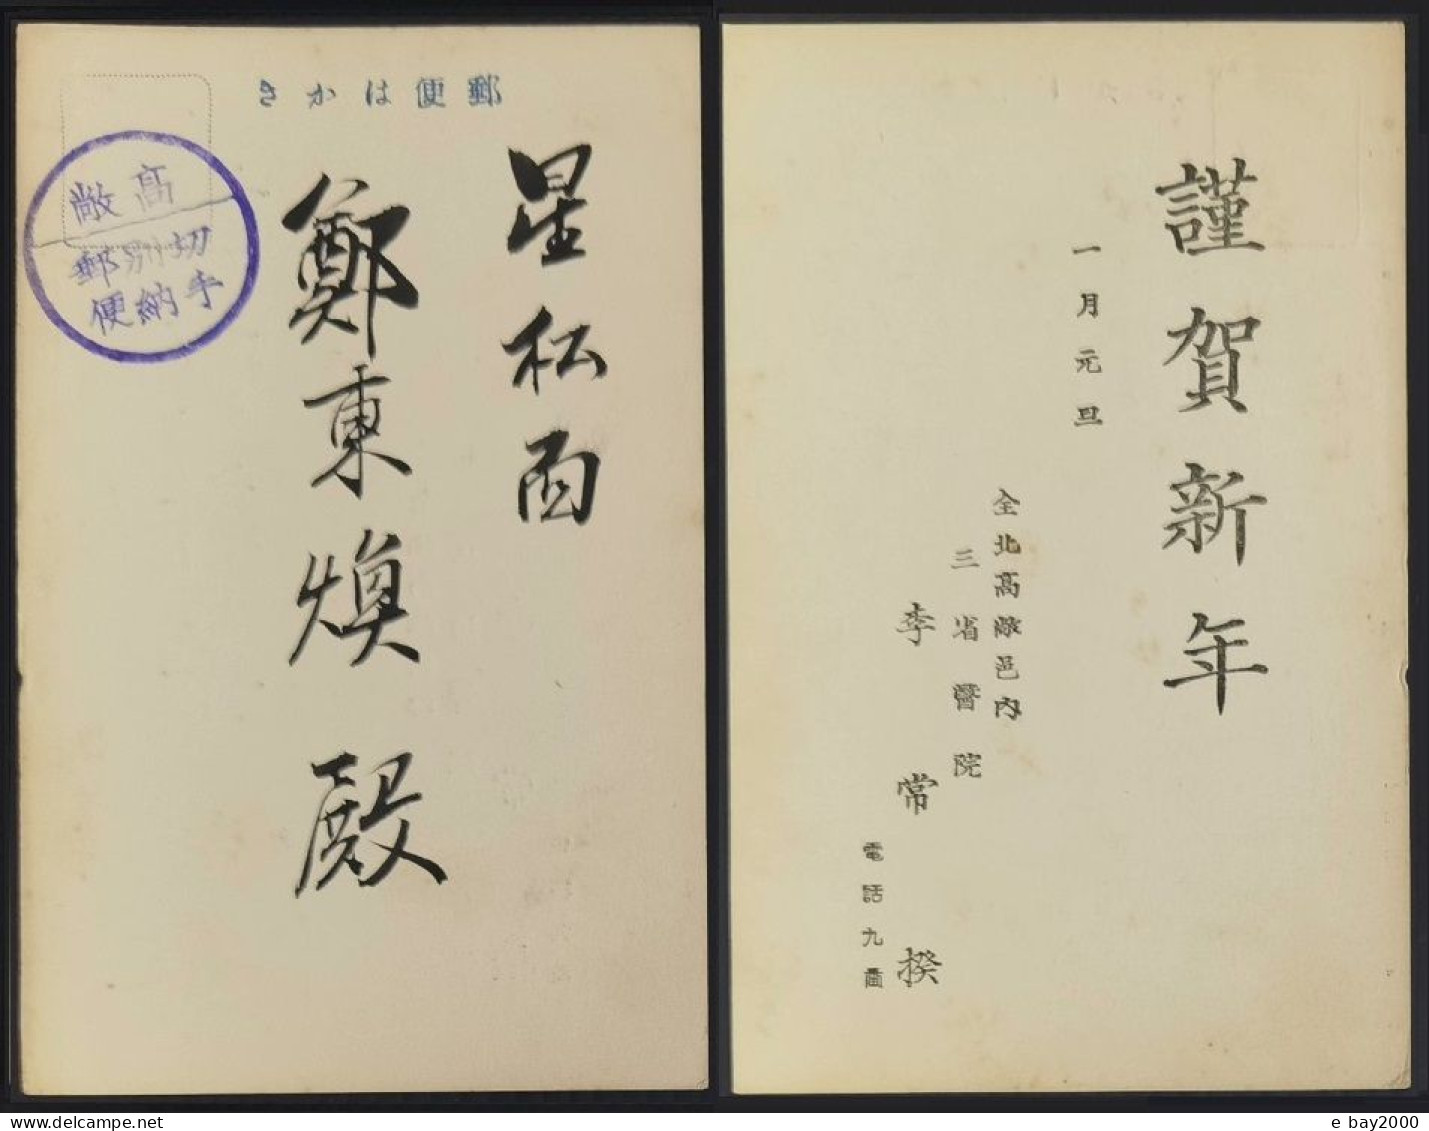 郵便はかき
星松面
鄭東煥殿
高敞
切手
別納
郵便
謹賀新年
一月元旦
全北高敞邑內
三省醫院
李常揆
電話九番
e bay2000